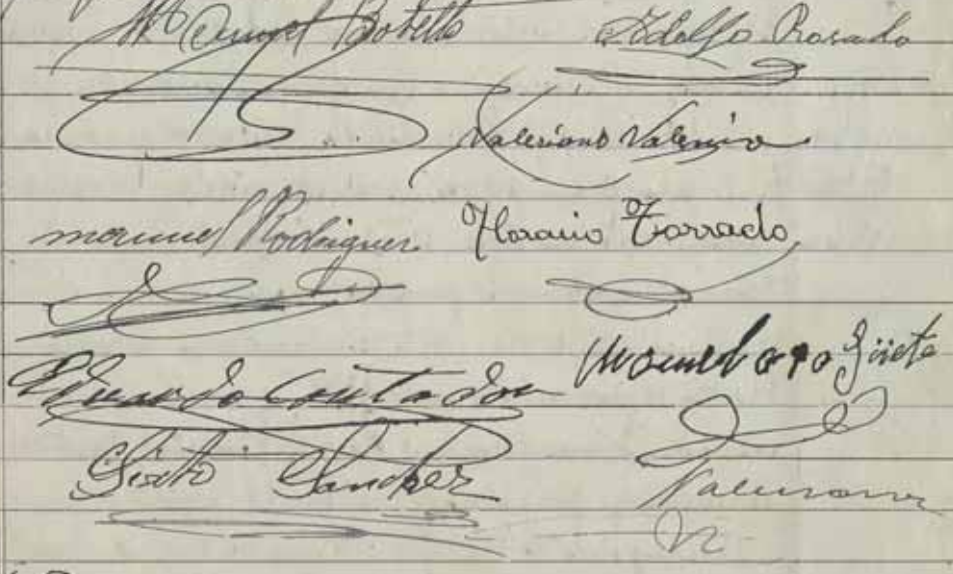 Manuel Botello Adolfo Rosado
Valeriano Valencia
manuel Rodriguez Horacio Torrado
Eduardo Contador Manuel
Sixto Sanchez